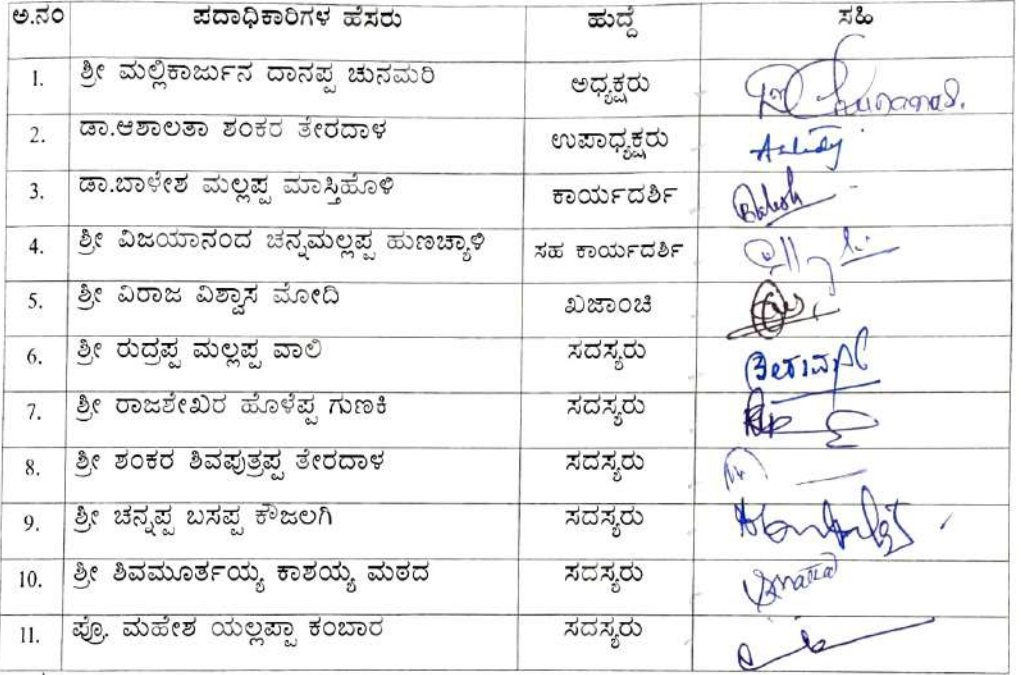 ಅ.ನಂ ಪದಾಧಿಕಾರಿಗಳ ಹೆಸರು ಹುದ್ದೆ ಸಹಿ
1. ಶ್ರೀ ಮಲ್ಲಿಕಾರ್ಜುನ ದಾನಪ್ಪ ಚುನಮರಿ ಅಧ್ಯಕ್ಷರು
2. ಡಾ.ಆಶಾಲತಾ ಶಂಕರ ತೇರದಾಳ ಉಪಾಧ್ಯಕ್ಷರು
3. ಡಾ.ಬಾಳೇಶ ಮಲ್ಲಪ್ಪ ಮಾಸ್ತಿಹೊಳಿ ಕಾರ್ಯದರ್ಶಿ
4. ಶ್ರೀ ವಿಜಯಾನಂದ ಚನ್ನಮಲ್ಲಪ್ಪ ಹುಣಚ್ಯಾಳಿ ಸಹ ಕಾರ್ಯದರ್ಶಿ
5. ಶ್ರೀ ವಿರಾಜ ವಿಶ್ವಾಸ ಮೋದಿ ಖಜಾಂಚಿ
6. ಶ್ರೀ ರುದ್ರಪ್ಪ ಮಲ್ಲಪ್ಪ ವಾಲಿ ಸದಸ್ಯರು
7. ಶ್ರೀ ರಾಜಶೇಖರ ಹೊಳೆಪ್ಪ ಗುಣಕಿ ಸದಸ್ಯರು
8. ಶ್ರೀ ಶಂಕರ ಶಿವಪುತ್ರಪ್ಪ ತೇರದಾಳ ಸದಸ್ಯರು
9. ಶ್ರೀ ಚನ್ನಪ್ಪ ಬಸಪ್ಪ ಕೌಜಲಗಿ ಸದಸ್ಯರು
10. ಶ್ರೀ ಶಿವಮೂರ್ತಯ್ಯ ಕಾಶಯ್ಯ ಮಠದ ಸದಸ್ಯರು
11. ಪ್ರೊ. ಮಹೇಶ ಯಲ್ಲಪ್ಪಾ ಕಂಬಾರ ಸದಸ್ಯರು